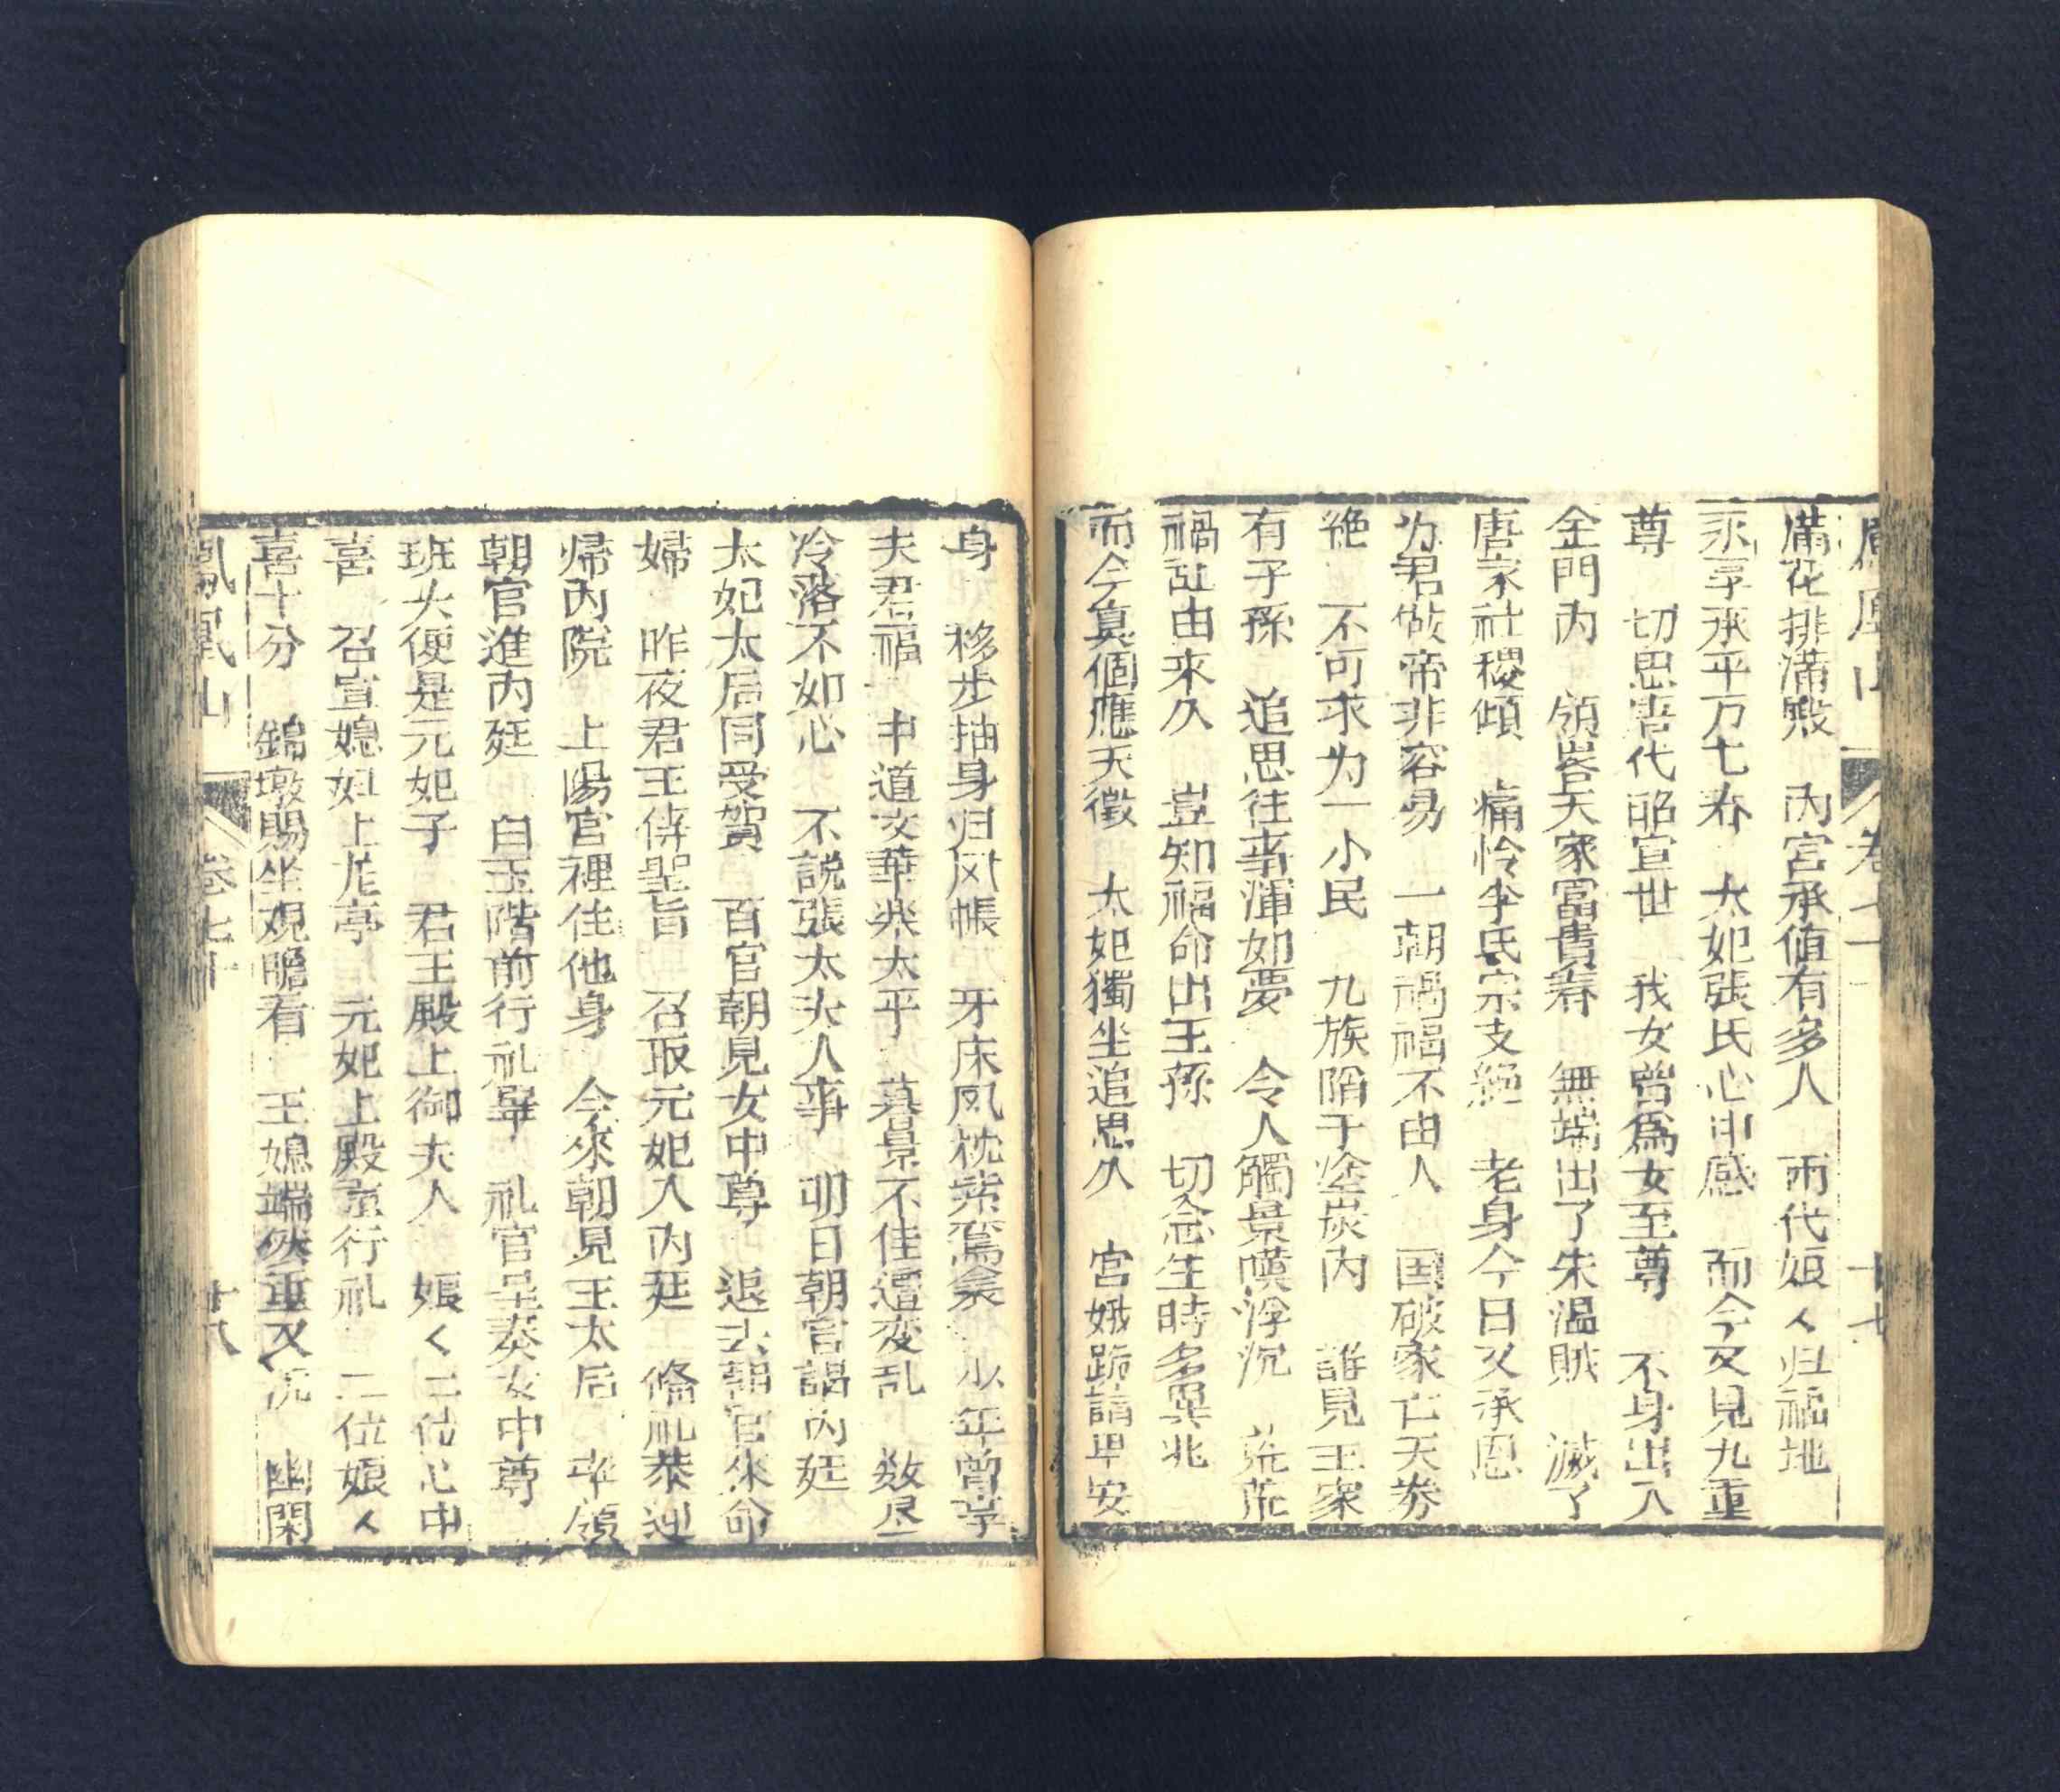 鳳凰山 卷七十 十七
滿花排滿殿 內宮承值有多人 两代娘々归福地
永享承平万七春 太妃張氏心中感 而今又見九重
尊 切思唐代昭宣世 我女曾為女至尊 不身出入
金門內 領畧天家冨貴春 無端出了朱温賊 滅了
唐家社稷傾 痛怜李氏宗支絕 老身今日又承恩
为君做帝非容易 一朝禍福不由人 国破家亡天劵
绝 不可求为一小民 九族陷于塗炭內 誰見王家
有子孫 追思往事渾如夢 令人觸景嘆浮沉 荒茫
禍乱由來久 豈知福命出王孫 切念生時多異兆
而今真個應天徵 太妃獨坐追思久 宮娥跪請早安
身 移步抽身归凤帳 牙床凤枕紫鴛衾 少年曾享
夫君福 中道文華樂太平 暮景不佳遭变乱 数尽
冷落不如心 不說張太夫人事 明日朝官謁內廷
太妃太后同受賀 百官朝見女中尊 退去朝官來命
婦 昨夜君王倖聖旨 召取元妃入內廷 脩礼恭迎
帰內院 上陽宮裡住他身 今來朝見王太后 率領
朝官進內廷 白玉階前行礼畢 礼官呈奏女中尊
班大便是元妃子 君王殿上御夫人 娘々二位心中
喜 召宣媳妇上龙亭 元妃上殿重行礼 二位娘々
喜十分 錦墩賜坐观瞻看 王媳端然重又沉 幽閑
鳳凰山 卷七十 廿八